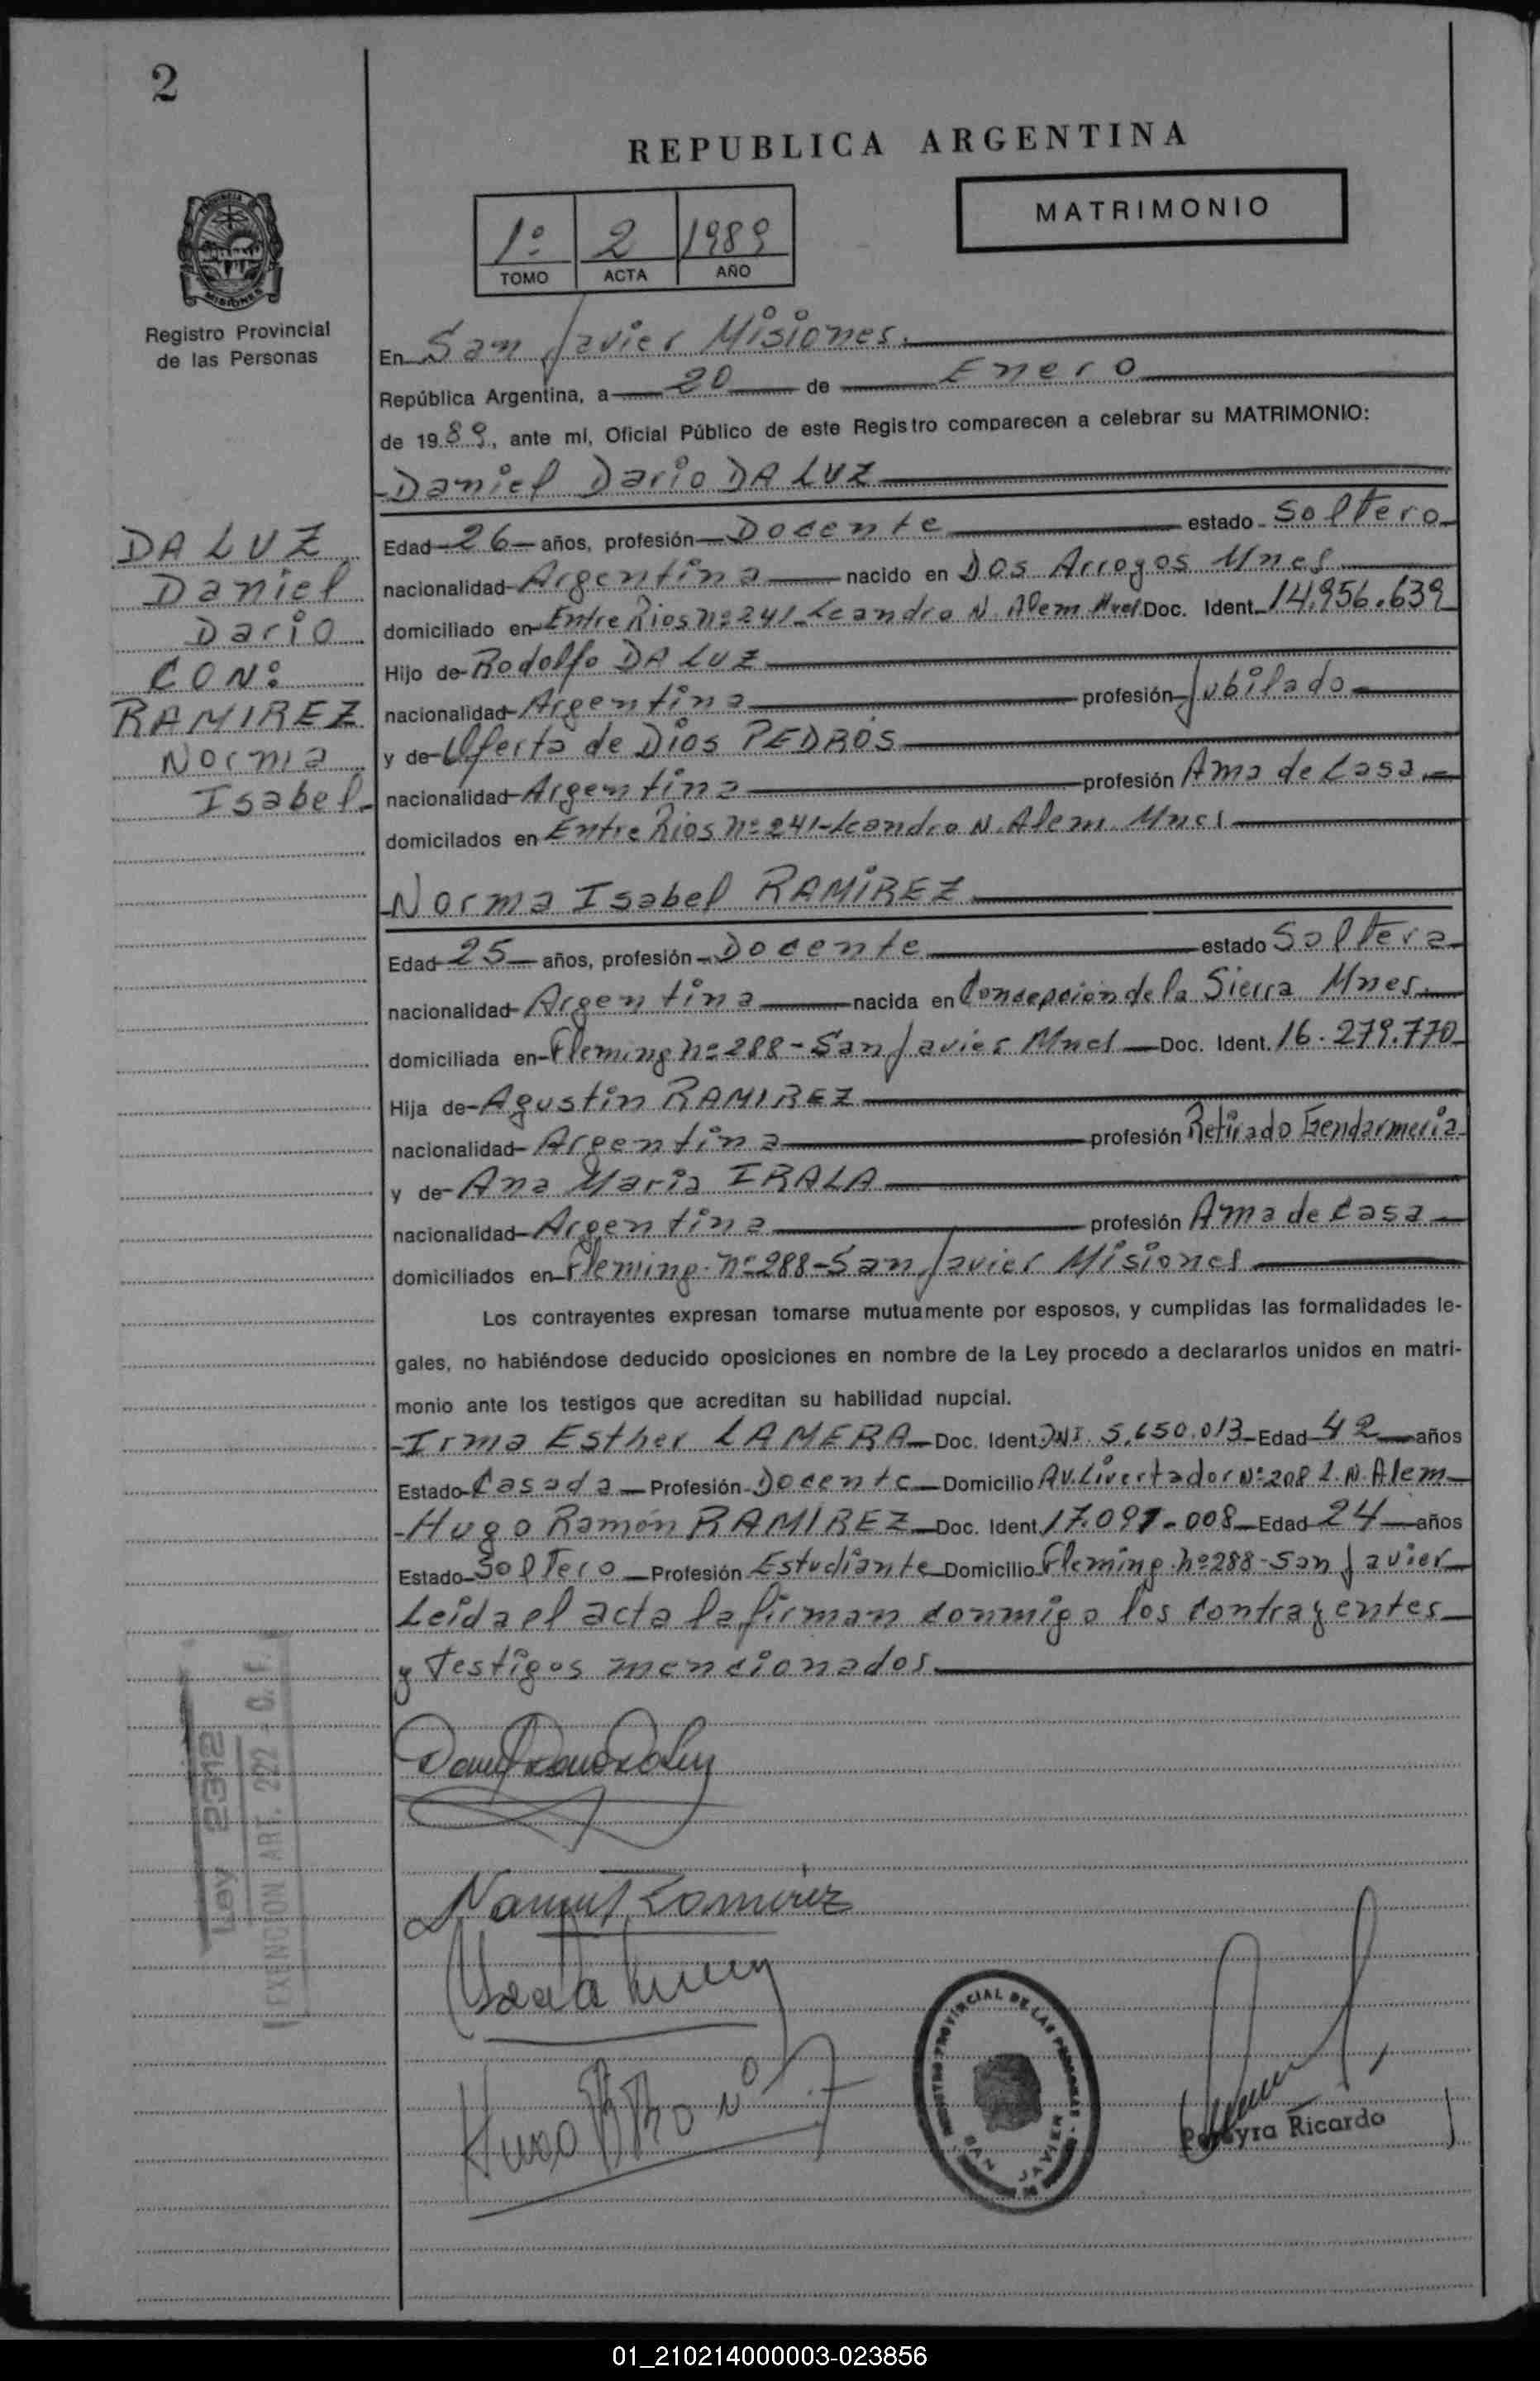 2
REPUBLICA ARGENTINA
MATRIMONIO
1º 2 1989
TOMO ACTA AÑO
MISIONES
Registro Provincial
de las Personas
En San Javier Misiones.
República Argentina, a 20 de Enero
de 1989, ante mí, Oficial Público de este Registro comparecen a celebrar su MATRIMONIO:
Daniel Dario DA LUZ
DA LUZ
Daniel
Dario
CON:
RAMIREZ
Norma
Isabel
Edad 26 años, profesión Docente estado Soltero
nacionalidad Argentina nacido en Dos Arroyos Mnes
domiciliado en Entre Rios nº 241 Leandro N. Alem Mnes Doc. Ident. 14.956.639
Hijo de Rodolfo DA LUZ
nacionalidad Argentina profesión Jubilado
y de Oferta de Dios PEDRÓS
nacionalidad Argentina profesión Ama de Casa
domicilados en Entre Rios nº 241-Leandro N. Alem Mnes
Norma Isabel RAMIREZ
Edad 25 años, profesión Docente estado Soltera
nacionalidad Argentina nacida en Concepción de la Sierra Mnes.
domiciliada en Fleming nº 288-San Javier Mnes Doc. Ident. 16.279.770
Hija de Agustin RAMIREZ
nacionalidad Argentina profesión Retirado Gendarmeria
y de Ana Maria IRALA
nacionalidad Argentina profesión Ama de Casa
domiciliados en Fleming nº 288-San Javier Misiones
Los contrayentes expresan tomarse mutuamente por esposos, y cumplidas las formalidades le-
gales, no habiéndose deducido oposiciones en nombre de la Ley procedo a declararlos unidos en matri-
monio ante los testigos que acreditan su habilidad nupcial.
Irma Esther LAMERA Doc. Ident. DNI. 5.650.013 Edad 42 años
Estado Casada Profesión Docente Domicilio Av. Livertador Nº 208 L.N. Alem
Hugo Ramón RAMIREZ Doc. Ident. 17.097-008 Edad 24 años
Estado Soltero Profesión Estudiante Domicilio Fleming nº 288-San Javier
Leida el acta la firman conmigo los contrayentes
y testigos mencionados
Ley 2312
EXENCION ART. 222 - C. F.
REGISTRO PROVINCIAL DE LAS PERSONAS
SAN JAVIER
Pereyra Ricardo
01_210214000003-023856